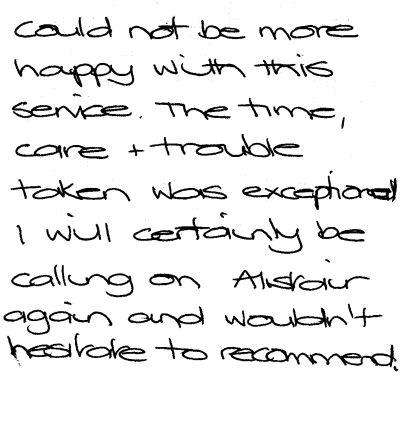 could not be more
happy with this
service. The time,
care + trouble
taken was exceptional
I will certainly be
calling on Alistair
again and wouldn't
hesitate to recommend.